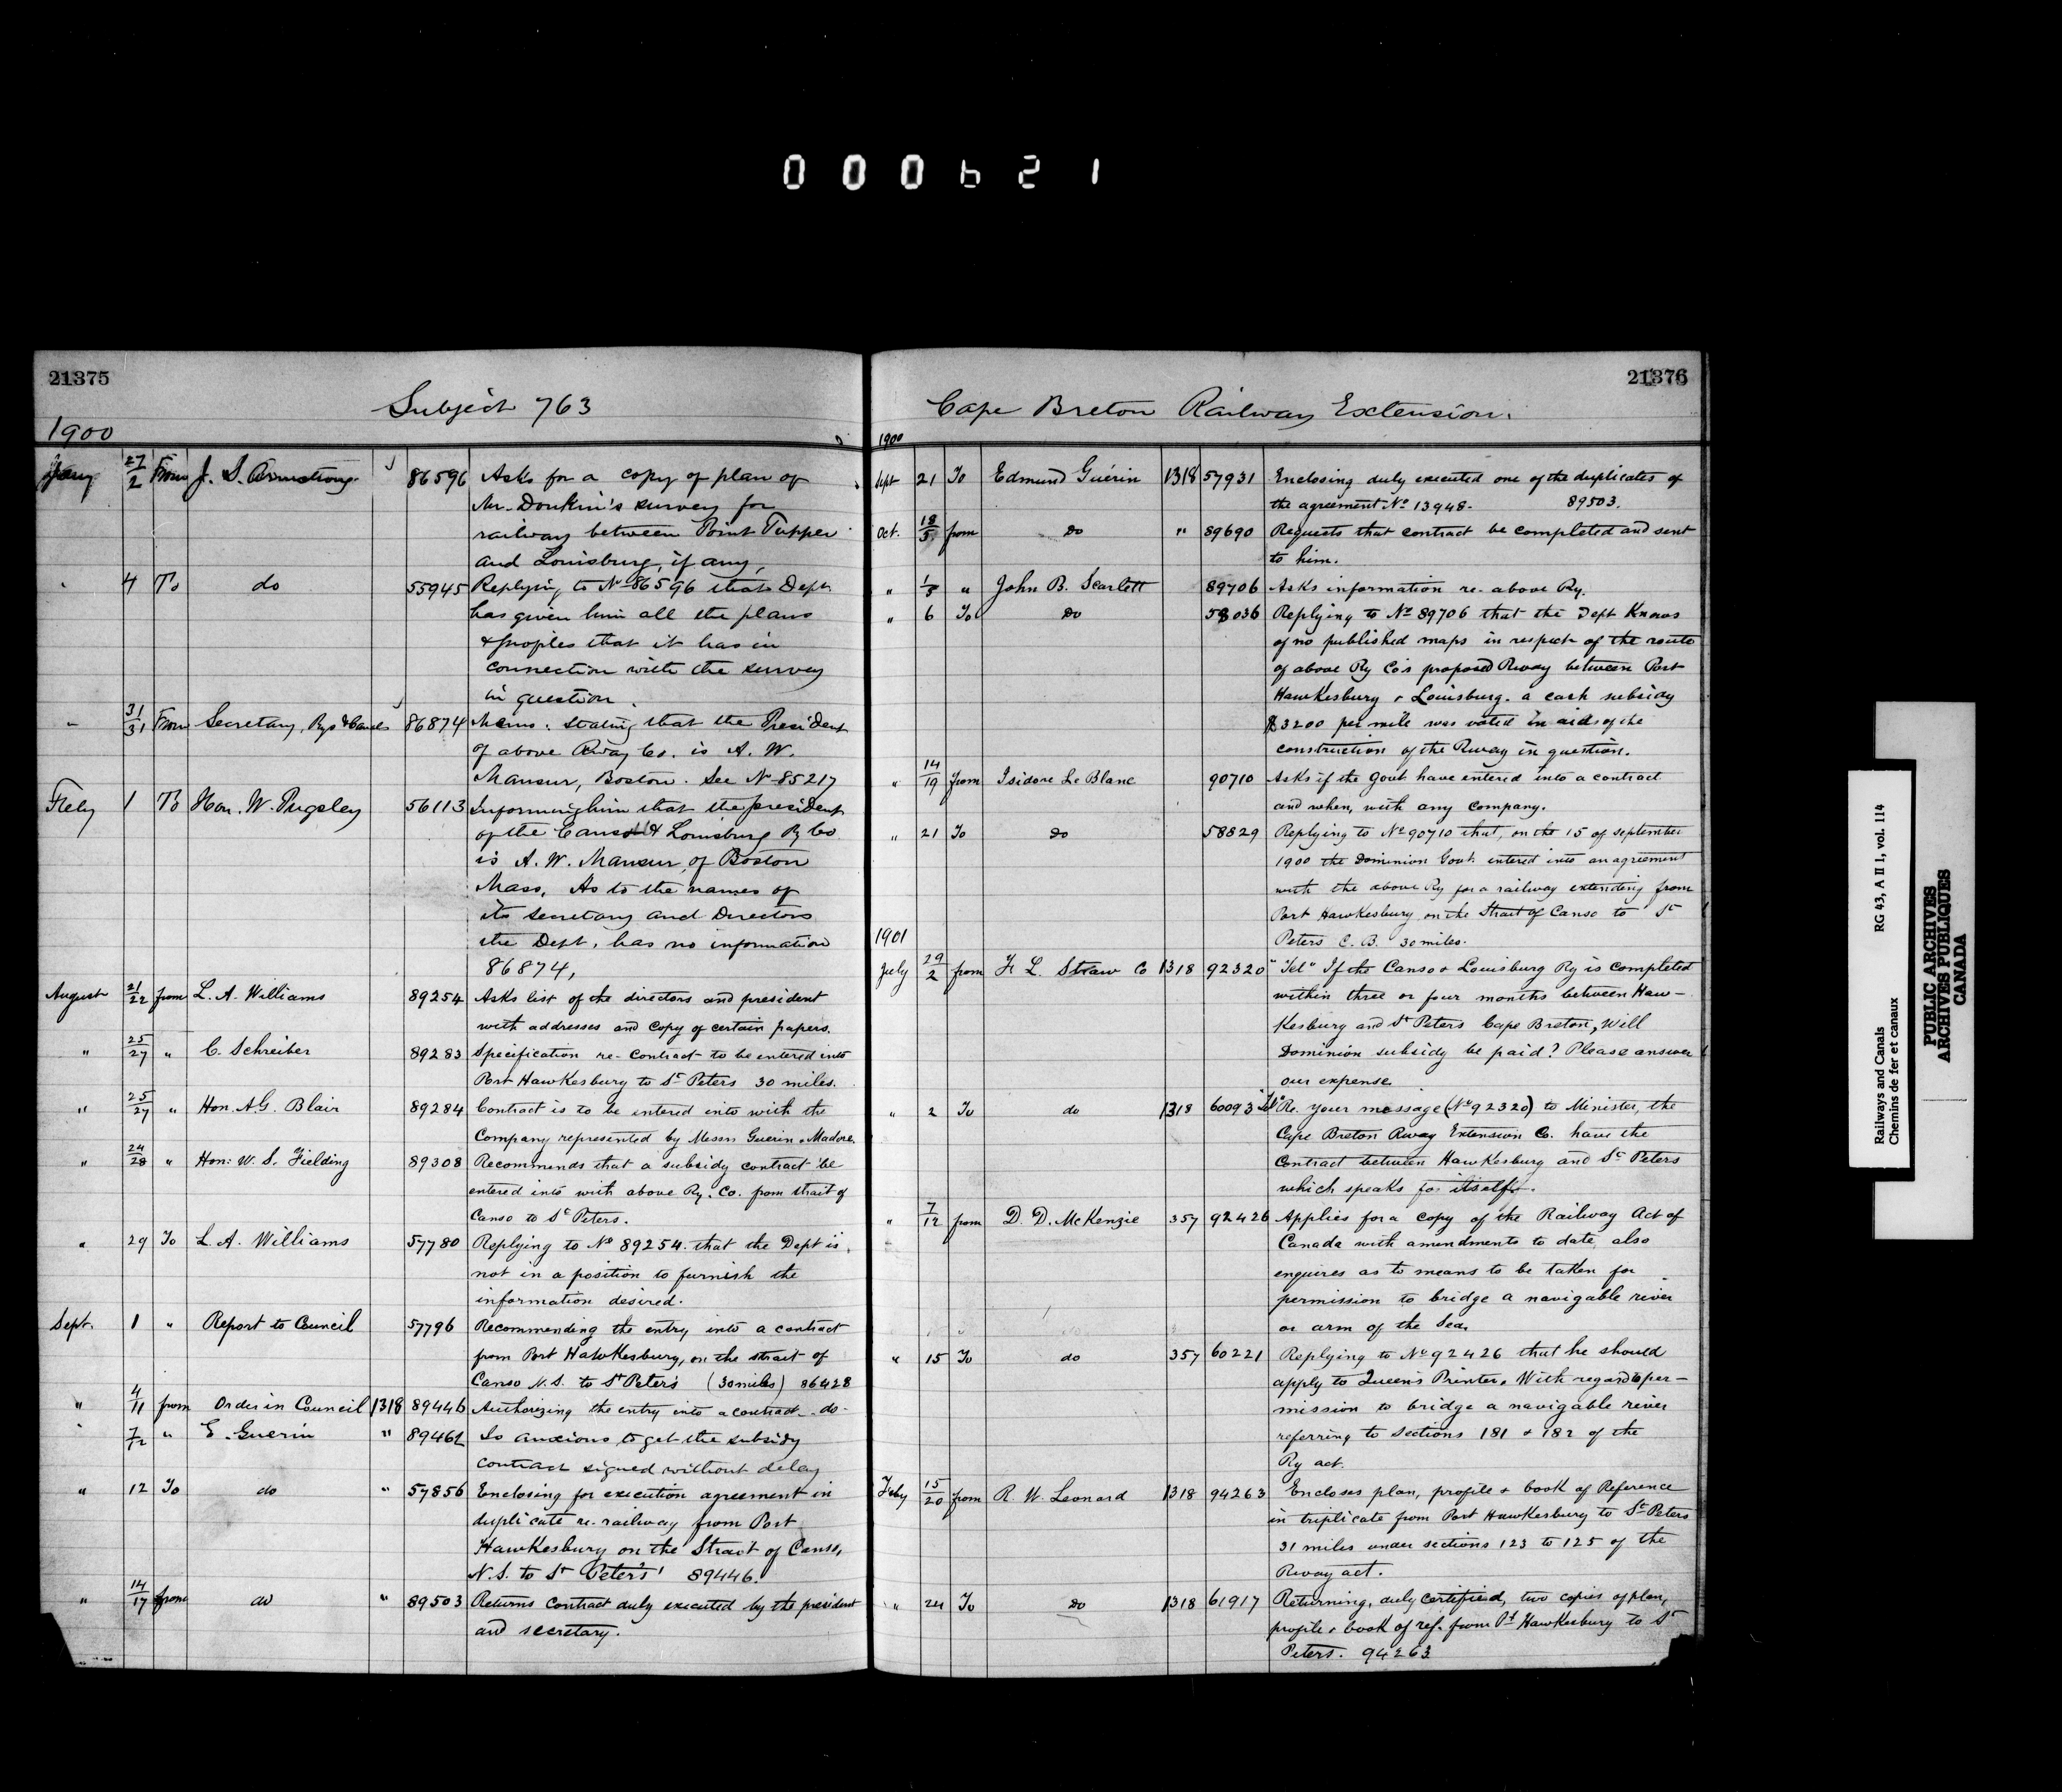 000621
21375
Subject 763
1900
Jany 27/2 From J. S. Armstrong 86596 Asks for a copy of plan of
Mr. Donkin's survey for
railway between Point Tupper
and Louisburg, if any,
" 4 To do 55945 Replying to No 86596 that Dept
has given him all the plans
& profiles that it has in
connection with the survey
in question.
" 31/31 From Secretary, Rys & Canals 86874 Memo: stating that the President
of above Rway Co. is A. W.
Mansur, Boston. See No 85217
Feby 1 To Hon. W. Pugsley 56113 Informing him that the president
of the Canso & Louisburg Ry Co
is A. W. Mansur, of Boston
Mass. As to the names of
its secretary and Directors
the Dept. has no information
86874,
August 21/22 from L. A. Williams 89254 Asks list of the directors and president
with addresses and copy of certain papers.
" 25/27 " C. Schreiber 89283 Specification re- contract to be entered into
Port Hawkesbury to St Peters 30 miles.
" 25/27 " Hon. A.G. Blair 89284 Contract is to be entered into with the
Company represented by Messrs Guerin & Madore.
" 24/28 " Hon: W. S. Fielding 89308 Recommends that a subsidy contract be
entered into with above Ry. Co. from strait of
Canso to St Peters.
" 29 To L. A. Williams 57780 Replying to No 89254. that the Dept is
not in a position to furnish the
information desired.
Sept. 1 " Report to Council 57796 Recommending the entry into a contract
from Port Hawkesbury, on the strait of
Canso N.S. to St Peters (30 miles) 86428
" 4/11 from Order in Council 1318 89446 Authorizing the entry into a contract - do -
" 7/12 " E. Guerin " 89462 Is anxious to get the subsidy
contract signed without delay
" 12 To do " 57856 Enclosing for execution agreement in
duplicate re. railway from Port
Hawkesbury on the Strait of Canso,
N.S. to St Peters' 89446.
" 14/17 from do " 89503 Returns contract duly executed by the president
and secretary.
21376
Cape Breton Railway Extension.
1900
Sept 21 To Edmund Guérin 1318 57931 Enclosing duly executed one of the duplicates of
the agreement No 13948. 89503.
Oct. 18/5 from Do " 89690 Requests that contract be completed and sent
to him.
" 1/5 " John B. Scarlett 89706 Asks information re- above Ry.
" 6 To Do 58036 Replying to No 89706 that the Dept Knows
of no published maps in respect of the route
of above Ry Co's proposed Rway between Port
Hawkesbury & Louisburg. a cash subsidy
$3200 per mile was voted in aid of the
construction of the Rway in question.
" 14/19 from Isidore Le Blanc 90710 Asks if the Govt have entered into a contract
and when, with any company.
" 21 To Do 58829 Replying to No 90710 that, on the 15 of September
1900 the Dominion Govt. entered into an agreement
with the above Ry for a railway extending from
Port Hawkesbury on the Strait of Canso to St
Peters C. B. 30 miles.
1901
July 29/2 from F. L. Straw Co 1318 92320 "Tel" If the Canso & Louisburg Ry is completed
within three or four months between Haw-
kesbury and St Peters Cape Breton, Will
Dominion subsidy be paid? Please answer
our expense
" 2 To do 1318 60093 "Tel" Re. your message (No 92320) to Minister, the
Cape Breton Rway Extension Co. have the
Contract between Hawkesbury and St Peters
which speaks for itself.
" 7/12 from D. D. McKenzie 357 92426 Applies for a copy of the Railway Act of
Canada with amendments to date, also
enquires as to means to be taken for
permission to bridge a navigable river
or arm of the Sea.
" 15 To do 357 60221 Replying to No 92426 that he should
apply to Queen's Printer. With regard to per-
mission to bridge a navigable river
referring to sections 181 & 182 of the
Ry act.
Feby 15/20 from R. W. Leonard 1318 94263 Encloses plan, profile & book of Reference
in triplicate from Port Hawkesbury to St Peters
31 miles under sections 123 to 125 of the
Rway act.
" 24 To Do 1318 61917 Returning, duly certified, two copies of plan,
profile & book of ref. from Pt Hawkesbury to St
Peters. 94263
Railways and Canals RG 43, A II 1, vol. 114
Chemins de fer et canaux
PUBLIC ARCHIVES
ARCHIVES PUBLIQUES
CANADA